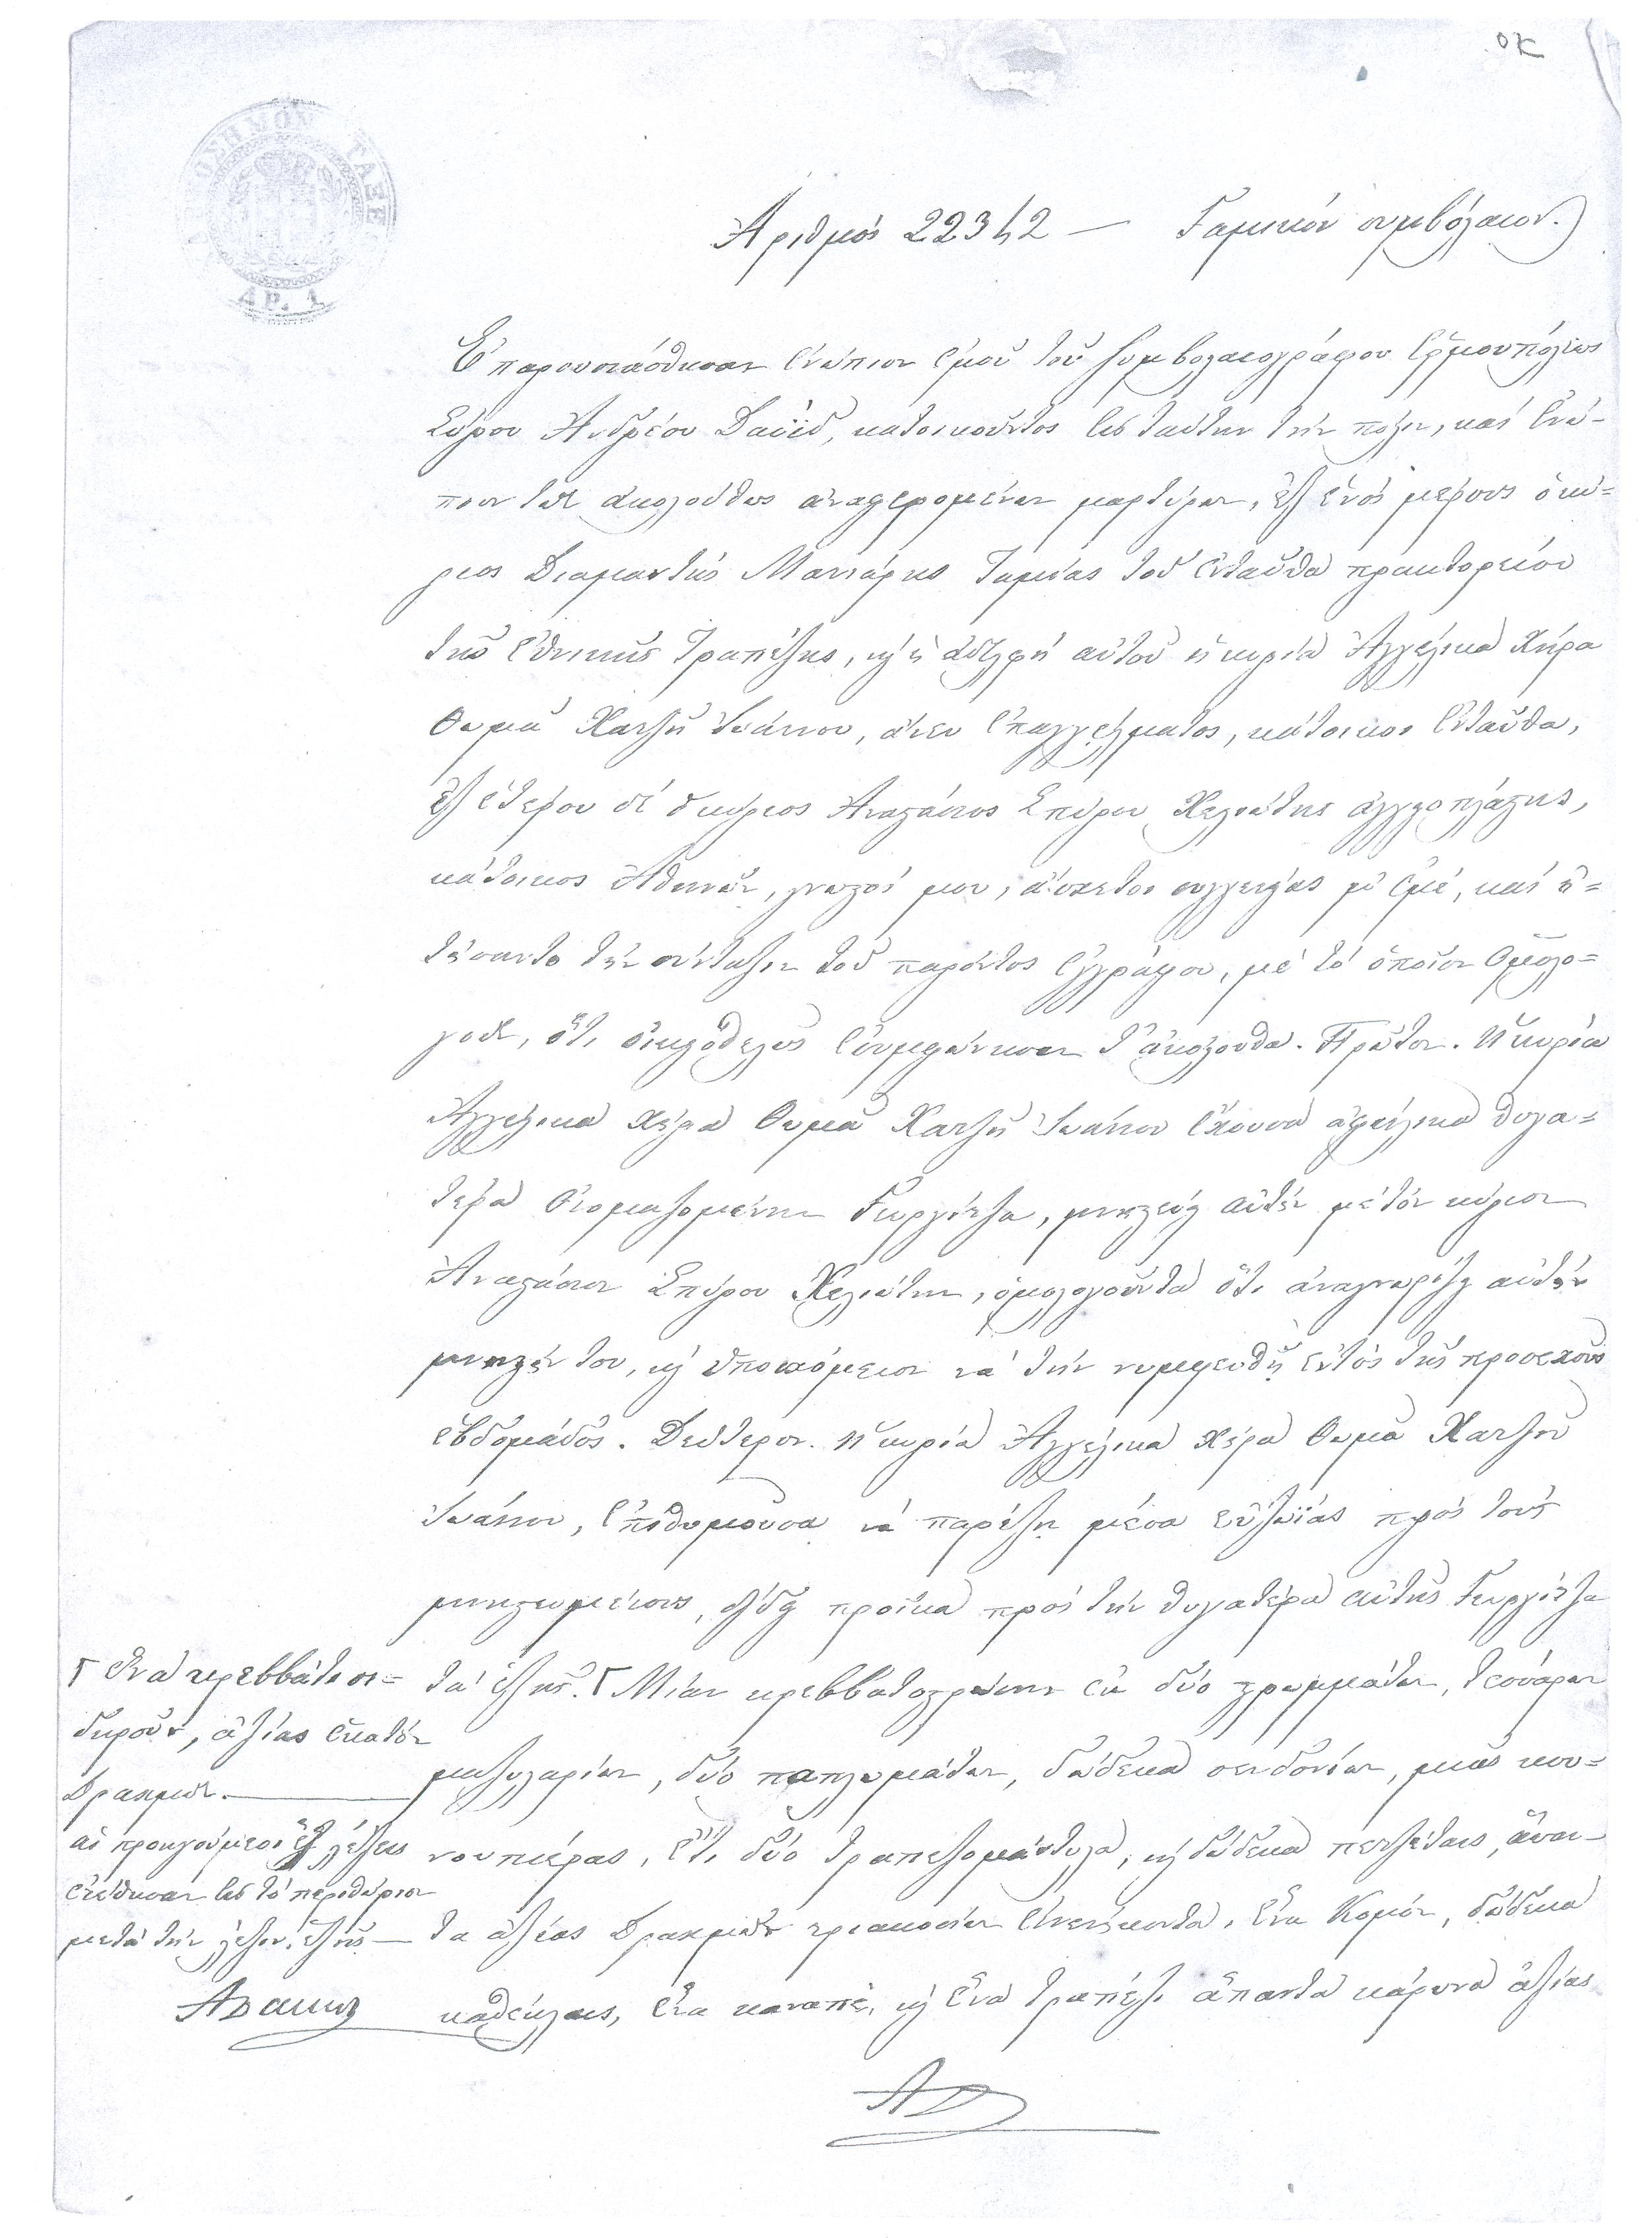 οκ
ΧΑΡΤΟΣΗΜΟΝ ΤΑΞΕ
ΔΡ. 1
Ἀριθμός 22342 — Γαμικόν συμβόλαιον.
Ἐπαρουσιάσθησαν ἐνώπιον ἐμοῦ τοῦ συμβολαιογράφου Ἑρμουπόλεως
Σύρου Ἀνδρέου Δαυΐδ, κατοικοῦντος εἰς ταύτην τήν πόλιν, καί ἐνώ-
πιον τῶν ἀκολούθως ἀναφερομένων μαρτύρων, ἐξ ἑνός μέρους ὁ κύ=
ριος Διαμαντής Μανιάρης Ταμίας τοῦ ἐνταῦθα πρακτορείου
τῆς Ἐθνικῆς Τραπέζης, ϗ ἡ ἀδελφή αὐτοῦ ἡ κυρία Ἀγγέλικα Χήρα
Θωμᾶ Χατζῆ Ἰωάννου, ἄνευ ἐπαγγέλματος, κάτοικοι ἐνταῦθα,
ἐξ ἑτέρου δέ ὁ κύριος Ἀναστάσιος Σπύρου Χελιώτης ἀγγειοπλάστης,
κάτοικος Ἀθηνῶν, γνωστοί μου, ἄσχετοι συγγενείας μ' ἐμέ, καί ᾐ=
τήσαντο τήν σύνταξιν τοῦ παρόντος ἐγγράφου, μέ τό ὁποῖον ὁμολο=
γοῦν, ὅτι οἰκιοθελῶς ἐσυμφώνησαν τ' ἀκόλουθα. Πρῶτον. Ἡ κυρία
Ἀγγέλικα χήρα Θωμᾶ Χατζῆ Ἰωάννου ἔχουσα ἀφήλικα θυγα=
τέρα ὀνομαζομένην Γεωργίτζα, μνηστεύει αὐτήν μέ τόν κύριον
Ἀναστάσιον Σπύρου Χελιώτην, ὁμολογοῦντα ὅτι ἀναγνωρίζει αὐτήν
μνηστήν του, ϗ ὑποσχόμενον νά τήν νυμφευθῇ ἐντός τῆς προσεχοῦς
ἑβδομάδος. Δεύτερον. Ἡ κυρία Ἀγγέλικα χήρα Θωμᾶ Χατζῆ
Ἰωάννου, ἐπιθυμοῦσα νά παρέξῃ μέσα εὐζωΐας πρός τούς
μνηστευμένους, δίδει προῖκα πρός τήν θυγατέρα αὐτῆς Γεωργίτζα
τά ἑξῆς. Γ Μίαν κρεββατοστρῶσιν ἐκ δύο στρωμμάτων, τεσσάρων
μαξυλαρίων, δύο παπλωμάτων, δώδεκα σενδονίων, μιᾶς κου=
νουπιέρας, ἔτι δύο τραπεζομάντυλα, ϗ δώδεκα πετζέταις, ἅπαν-
τα ἀξίας Δραχμῶν τριακοσίων ἐνενήκοντα, ἕνα Κομόν, δώδεκα
καθέκλαις, ἕνα καναπέ, ϗ ἕνα τραπέζι ἅπαντα κάρυνα ἀξίας
Γ ἕνα κρεββάτι σι=
δηροῦν, ἀξίας ἑκατόν
Δραχμῶν.
αἱ προηγούμεναι ἕξ λέξεις
ἐτέθησαν εἰς τό περιθώριον
μετά τήν λέξιν, ἑξῆς —
ΑΔ